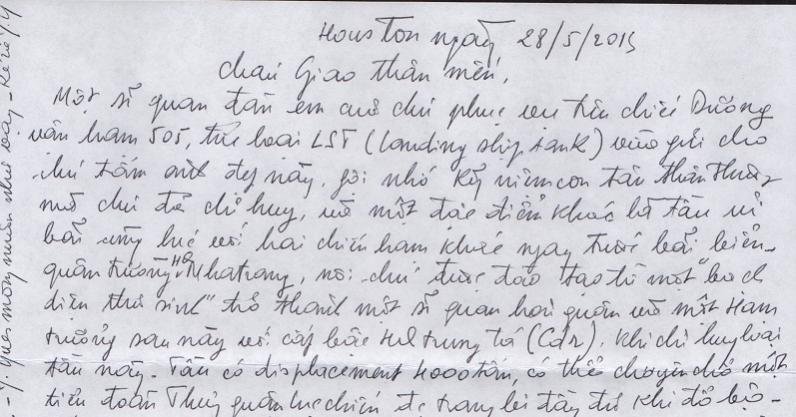 Houston ngày 28/5/2015
cháu Giao thân mến,
Một sĩ quan đàn em cũ chú phục vụ trên chiếc Dương
vận hạm 505, thuộc loại LST (landing ship tank) vừa gửi cho
chú tấm ảnh đẹp này, gợi nhớ kỷ niệm con tàu thân thương
mà chú đã chỉ huy, và một đặc điểm khác là tàu ủi
bãi cùng lúc với hai chiến hạm khác ngay trước bãi biển
quân trường HQ Nhatrang, nơi chú được đào tạo từ một "bạch
diện thư sinh" trở thành một sĩ quan hải quân và một Hạm
trưởng sau này với cấp bậc HQ trung tá (Cdr), khi chỉ huy loại
tàu này. Tàu có displacement 4000 tấn, có thể chuyên chở một
tiểu đoàn Thủy quân lục chiến được trang bị đầy đủ khi đổ bộ-